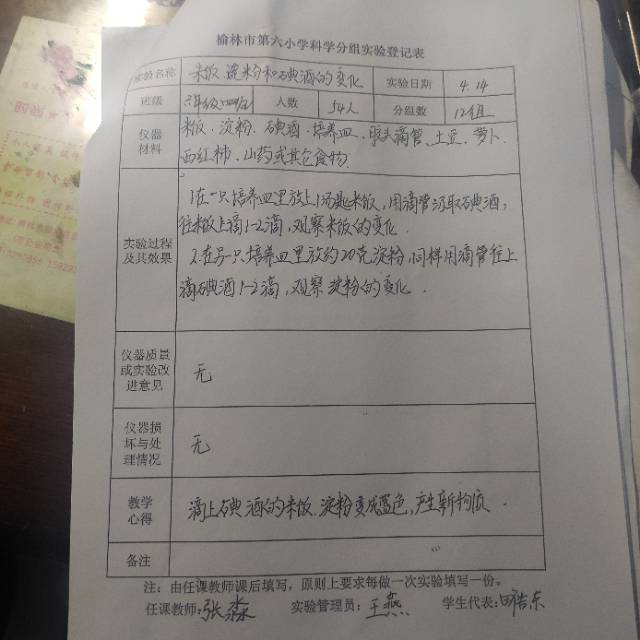 榆林市第六小学科学分组实验登记表
实验名称 米饭、淀粉和碘酒的变化 实验日期 4.14
班级 三年级四班 人数 54人 分组数 12组
仪器材料 米饭、淀粉、碘酒、培养皿、胶头滴管、土豆、萝卜
西红柿、山药或其它食物
实验过程及其效果 1.在一只培养皿里放上1汤匙米饭,用滴管汲取碘酒,
往米饭上滴1-2滴,观察米饭的变化.
2.在另一只培养皿里放约20克淀粉,同样用滴管往上
滴碘酒1-2滴,观察淀粉的变化.
仪器质量或实验改进意见 无
仪器损坏与处理情况 无
教学心得 滴上碘酒的米饭、淀粉变成蓝色,产生新物质.
备注
注:由任课教师课后填写,原则上要求每做一次实验填写一份。
任课教师:张淼 实验管理员:王燕 学生代表: